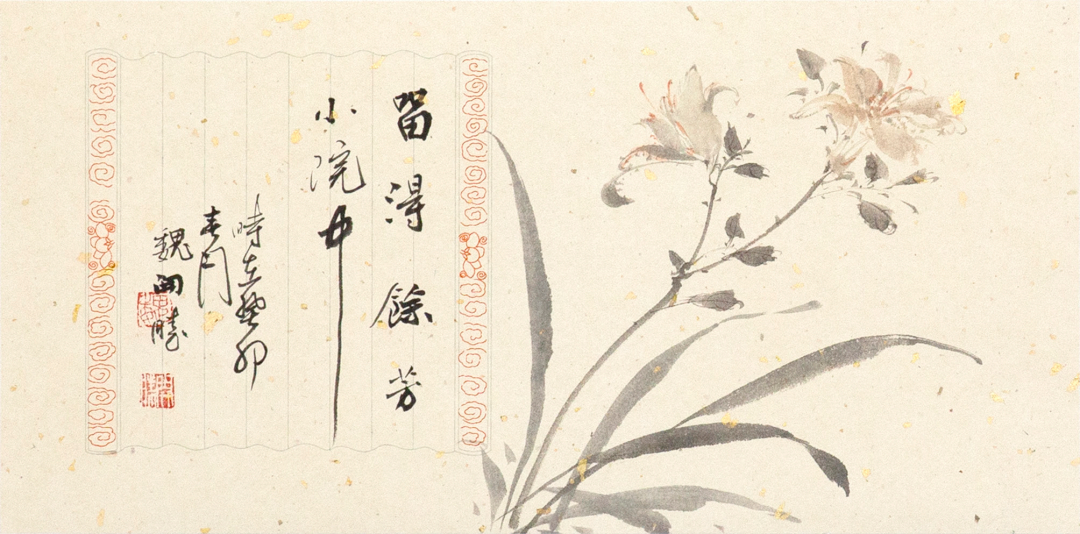 留得餘芳
小院中
時在癸卯
春月
魏 勝